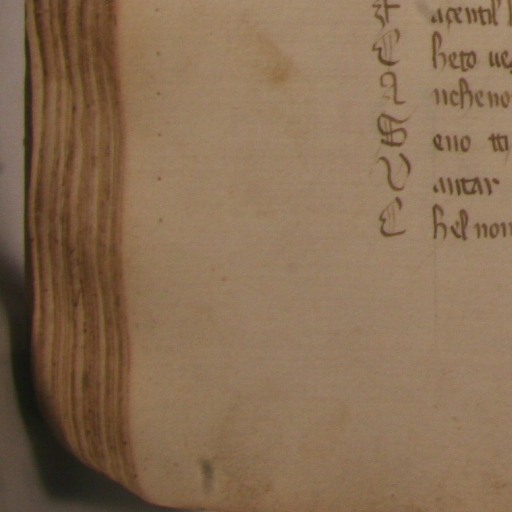 F açentil
C heto ue
A ncheno
S eno tti
V antar
C hel non